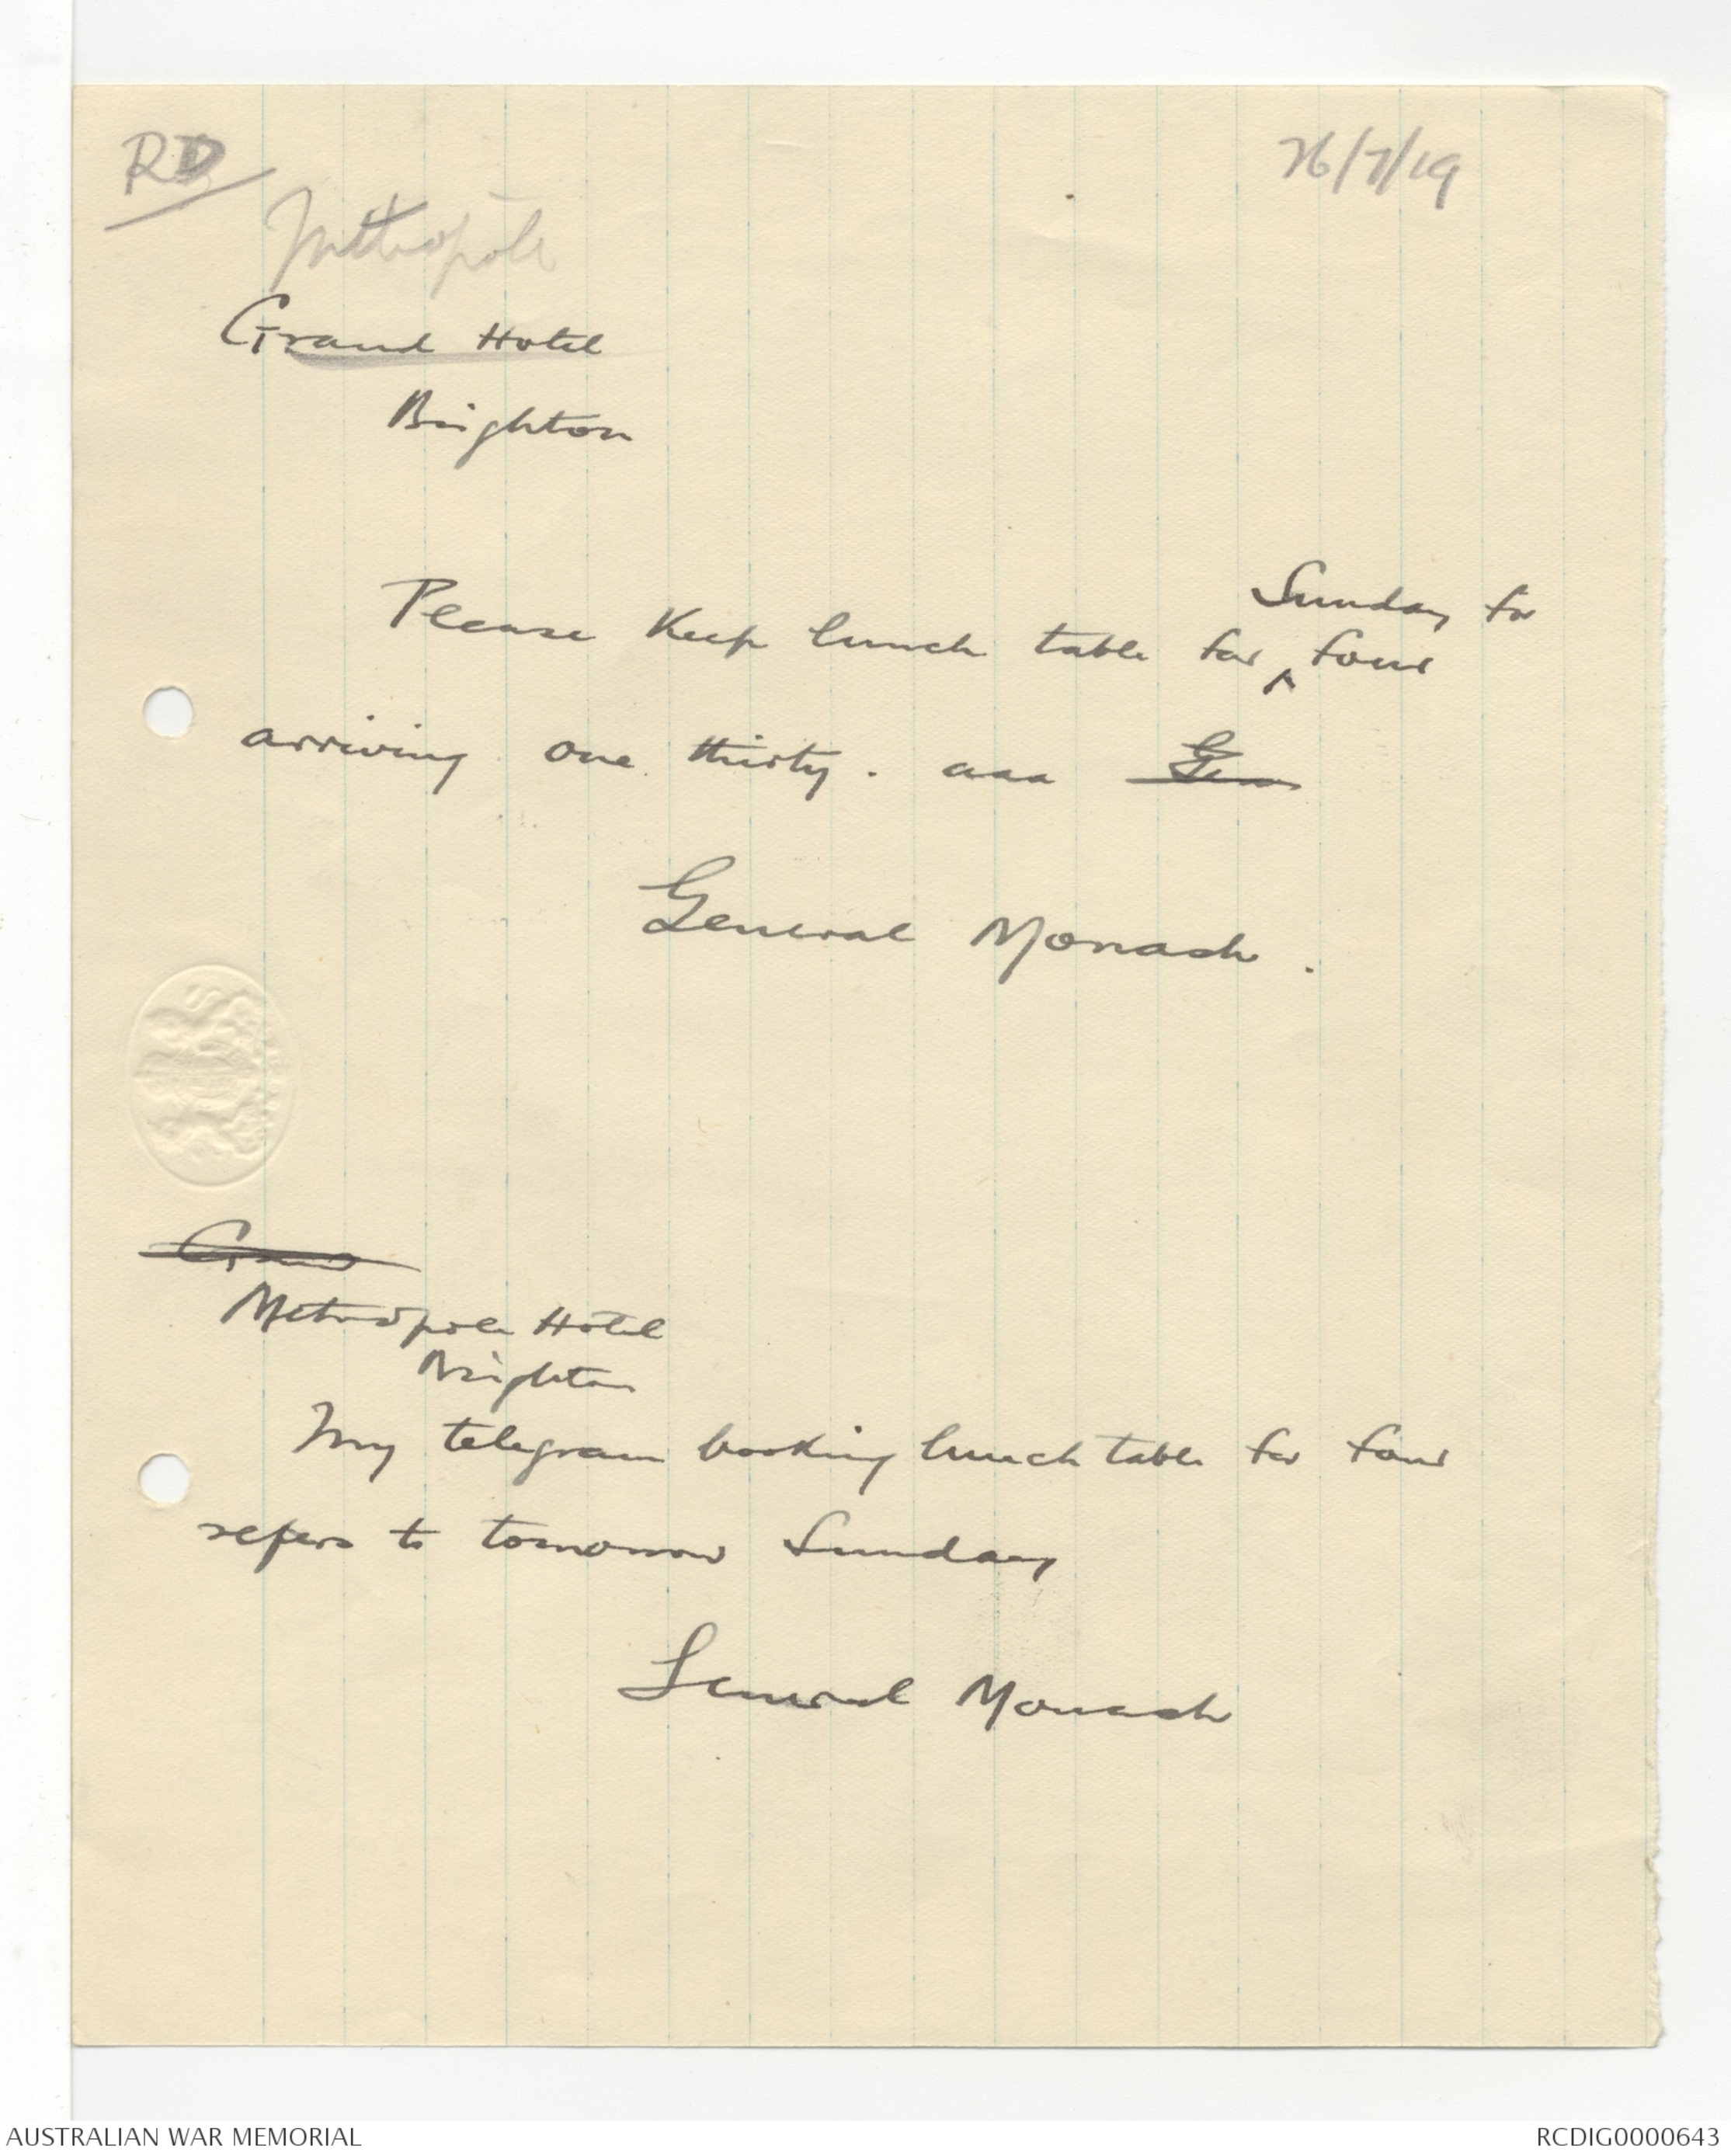 RD
26/7/19
Metropole
Grand Hotel
Brighton
Sunday for
Please keep lunch table for ^ four
arriving one thirty. aaa Gen
General Monash.
Grand
Metropole Hotel
Brighton
My telegram booking lunch table for four
refers to tomorrow Sunday
General Monash
AUSTRALIAN WAR MEMORIAL
RCDIG0000643